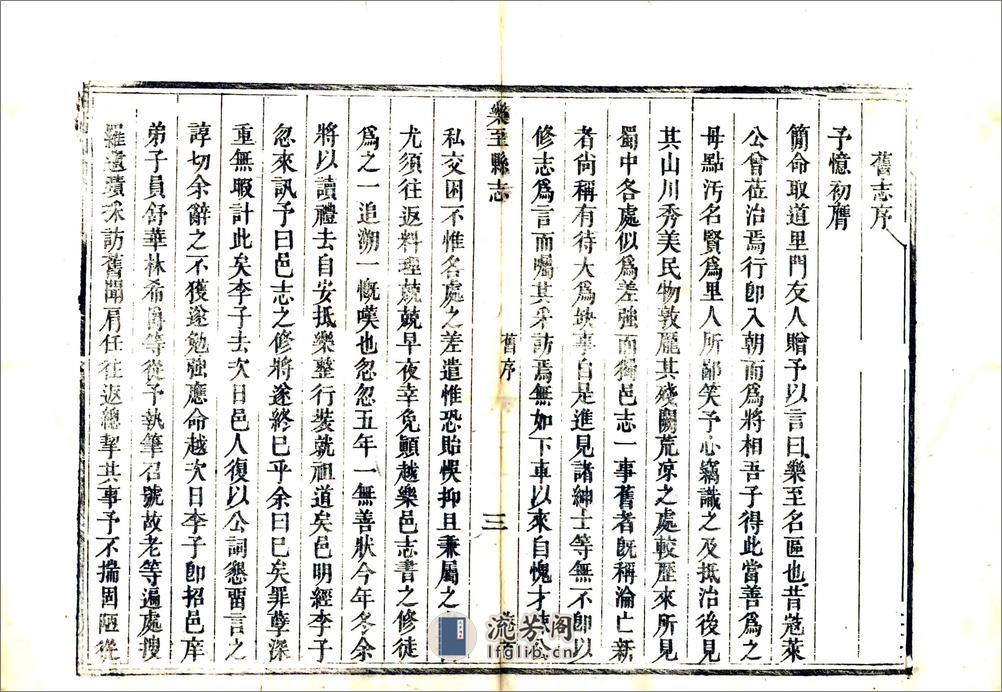 舊志序
予憶初膺
簡命取道里門友人贈予以言曰樂至名區也昔寇萊
公曾莅治焉行卽入朝而爲將相吾子得此當善爲之
毋點汚名賢爲里人所鄙笑予心竊識之及抵治後見
其山川秀美民物敦龐其殘闕荒凉之處較歷來所見
蜀中各處似爲差強而獨邑志一事舊者旣稱淪亡新
者尙稱有待大爲缺事自是進見諸紳士等無不卽以
修志爲言而囑其采訪焉無如下車以來自愧才
樂至縣志
舊序
三
私交困不惟各處之差遣惟恐貽悞抑且兼屬之
尤須往返料理兢兢早夜幸免顚越樂邑志書之修徒
爲之一追溯一慨嘆也忽忽五年一無善狀今年冬余
將以讀禮去自安抵樂整行裝就祖道矣邑明經李子
忽來訊予曰邑志之修將遂終已乎余曰已矣罪孽深
重無暇計此矣李子去次日邑人復以公詞懇畱言之
諄切余辭之不獲遂勉強應命越次日李子卽招邑庠
弟子員舒華林希 等從予執筆召號故老等遍處搜
羅遺蹟采訪舊聞肩任往返總挈其事予不揣固陋從
流芳阁
lfglib.cn